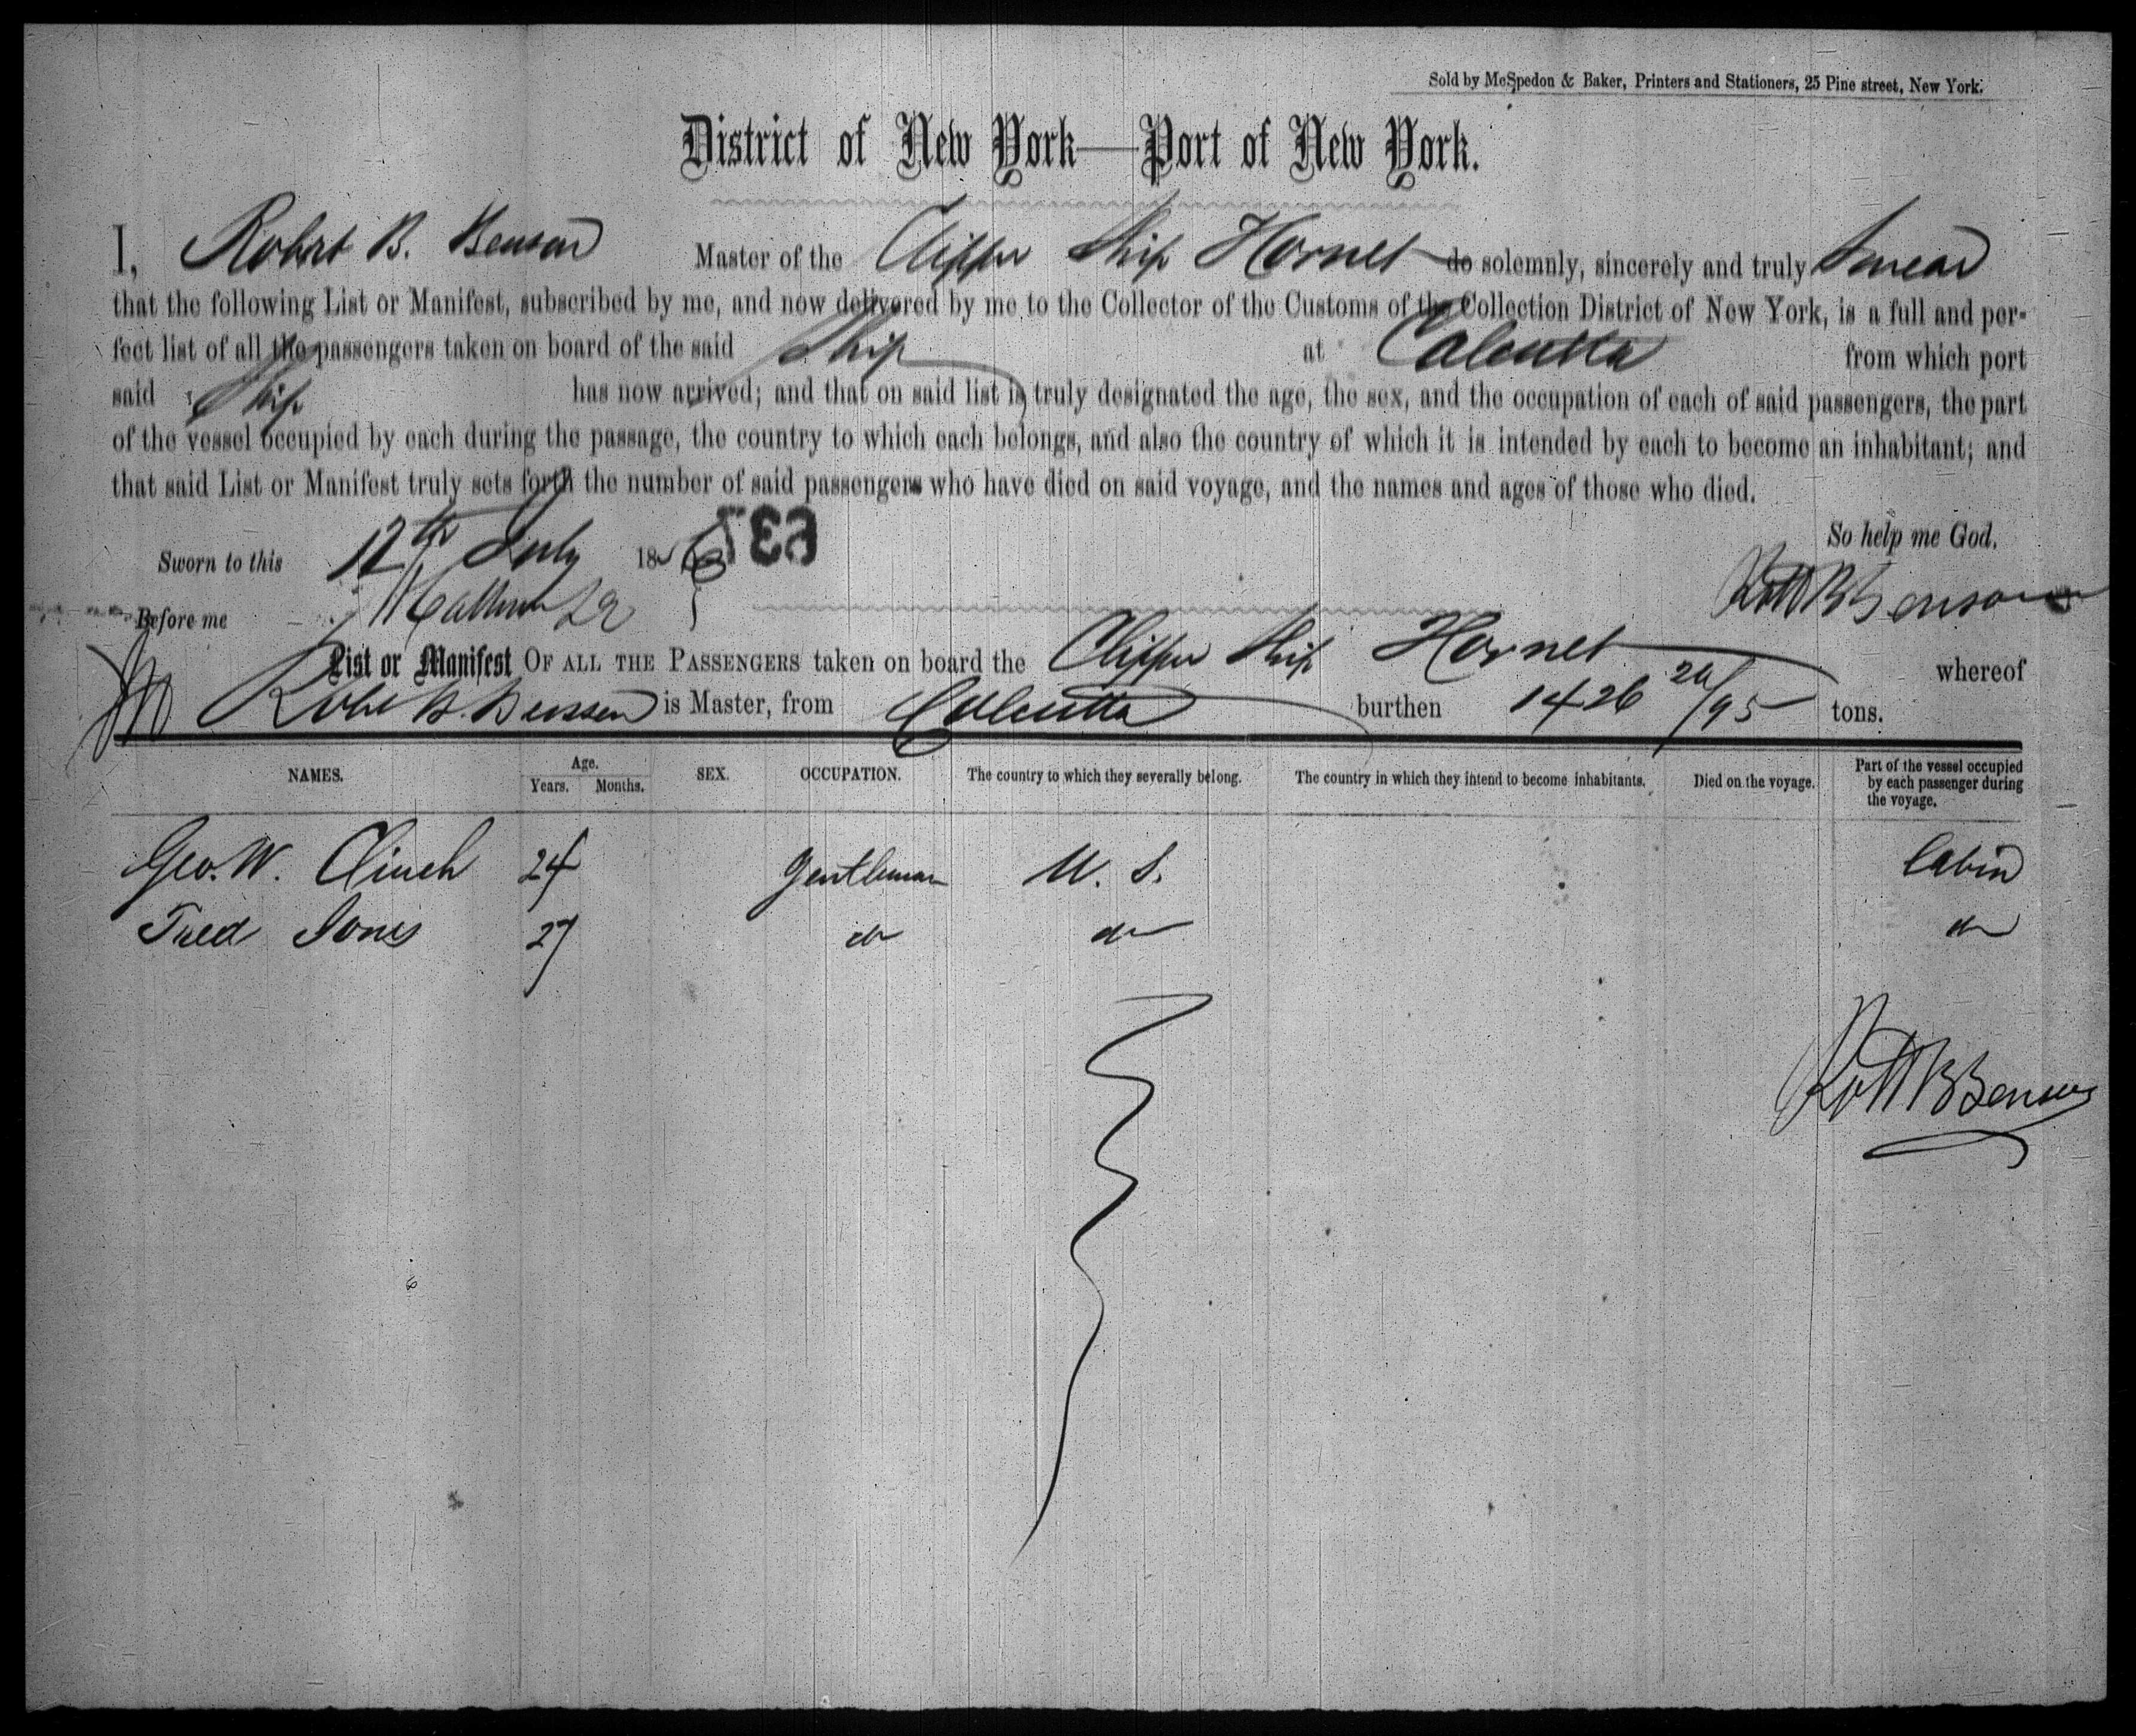 Sold by McSpedon & Baker, Printers and Stationers, 25 Pine street, New York.
District of New York—Port of New York.
I, Robert B. Benson Master of the Clipper Ship Hornet do solemnly, sincerely and truly Swear
that the following List or Manifest, subscribed by me, and now delivered by me to the Collector of the Customs of the Collection District of New York, is a full and per-
fect list of all the passengers taken on board of the said Ship at Calcutta from which port
said Ship has now arrived; and that on said list is truly designated the age, the sex, and the occupation of each of said passengers, the part
of the vessel occupied by each during the passage, the country to which each belongs, and also the country of which it is intended by each to become an inhabitant; and
that said List or Manifest truly sets forth the number of said passengers who have died on said voyage, and the names and ages of those who died.
So help me God.
Sworn to this 12th July 18
Robt B Benson
Before me
List or Manifest OF ALL THE PASSENGERS taken on board the Clipper Ship Hornet whereof
Robt B. Benson is Master, from Calcutta burthen 1426 20/95 tons.
NAMES. Age. Years. Months. SEX. OCCUPATION. The country to which they severally belong. The country in which they intend to become inhabitants. Died on the voyage. Part of the vessel occupied by each passenger during the voyage.
Geo. W. Clinch 24 Gentleman U. S. Cabin
Fred Jones 27 do do do
Robt B Benson